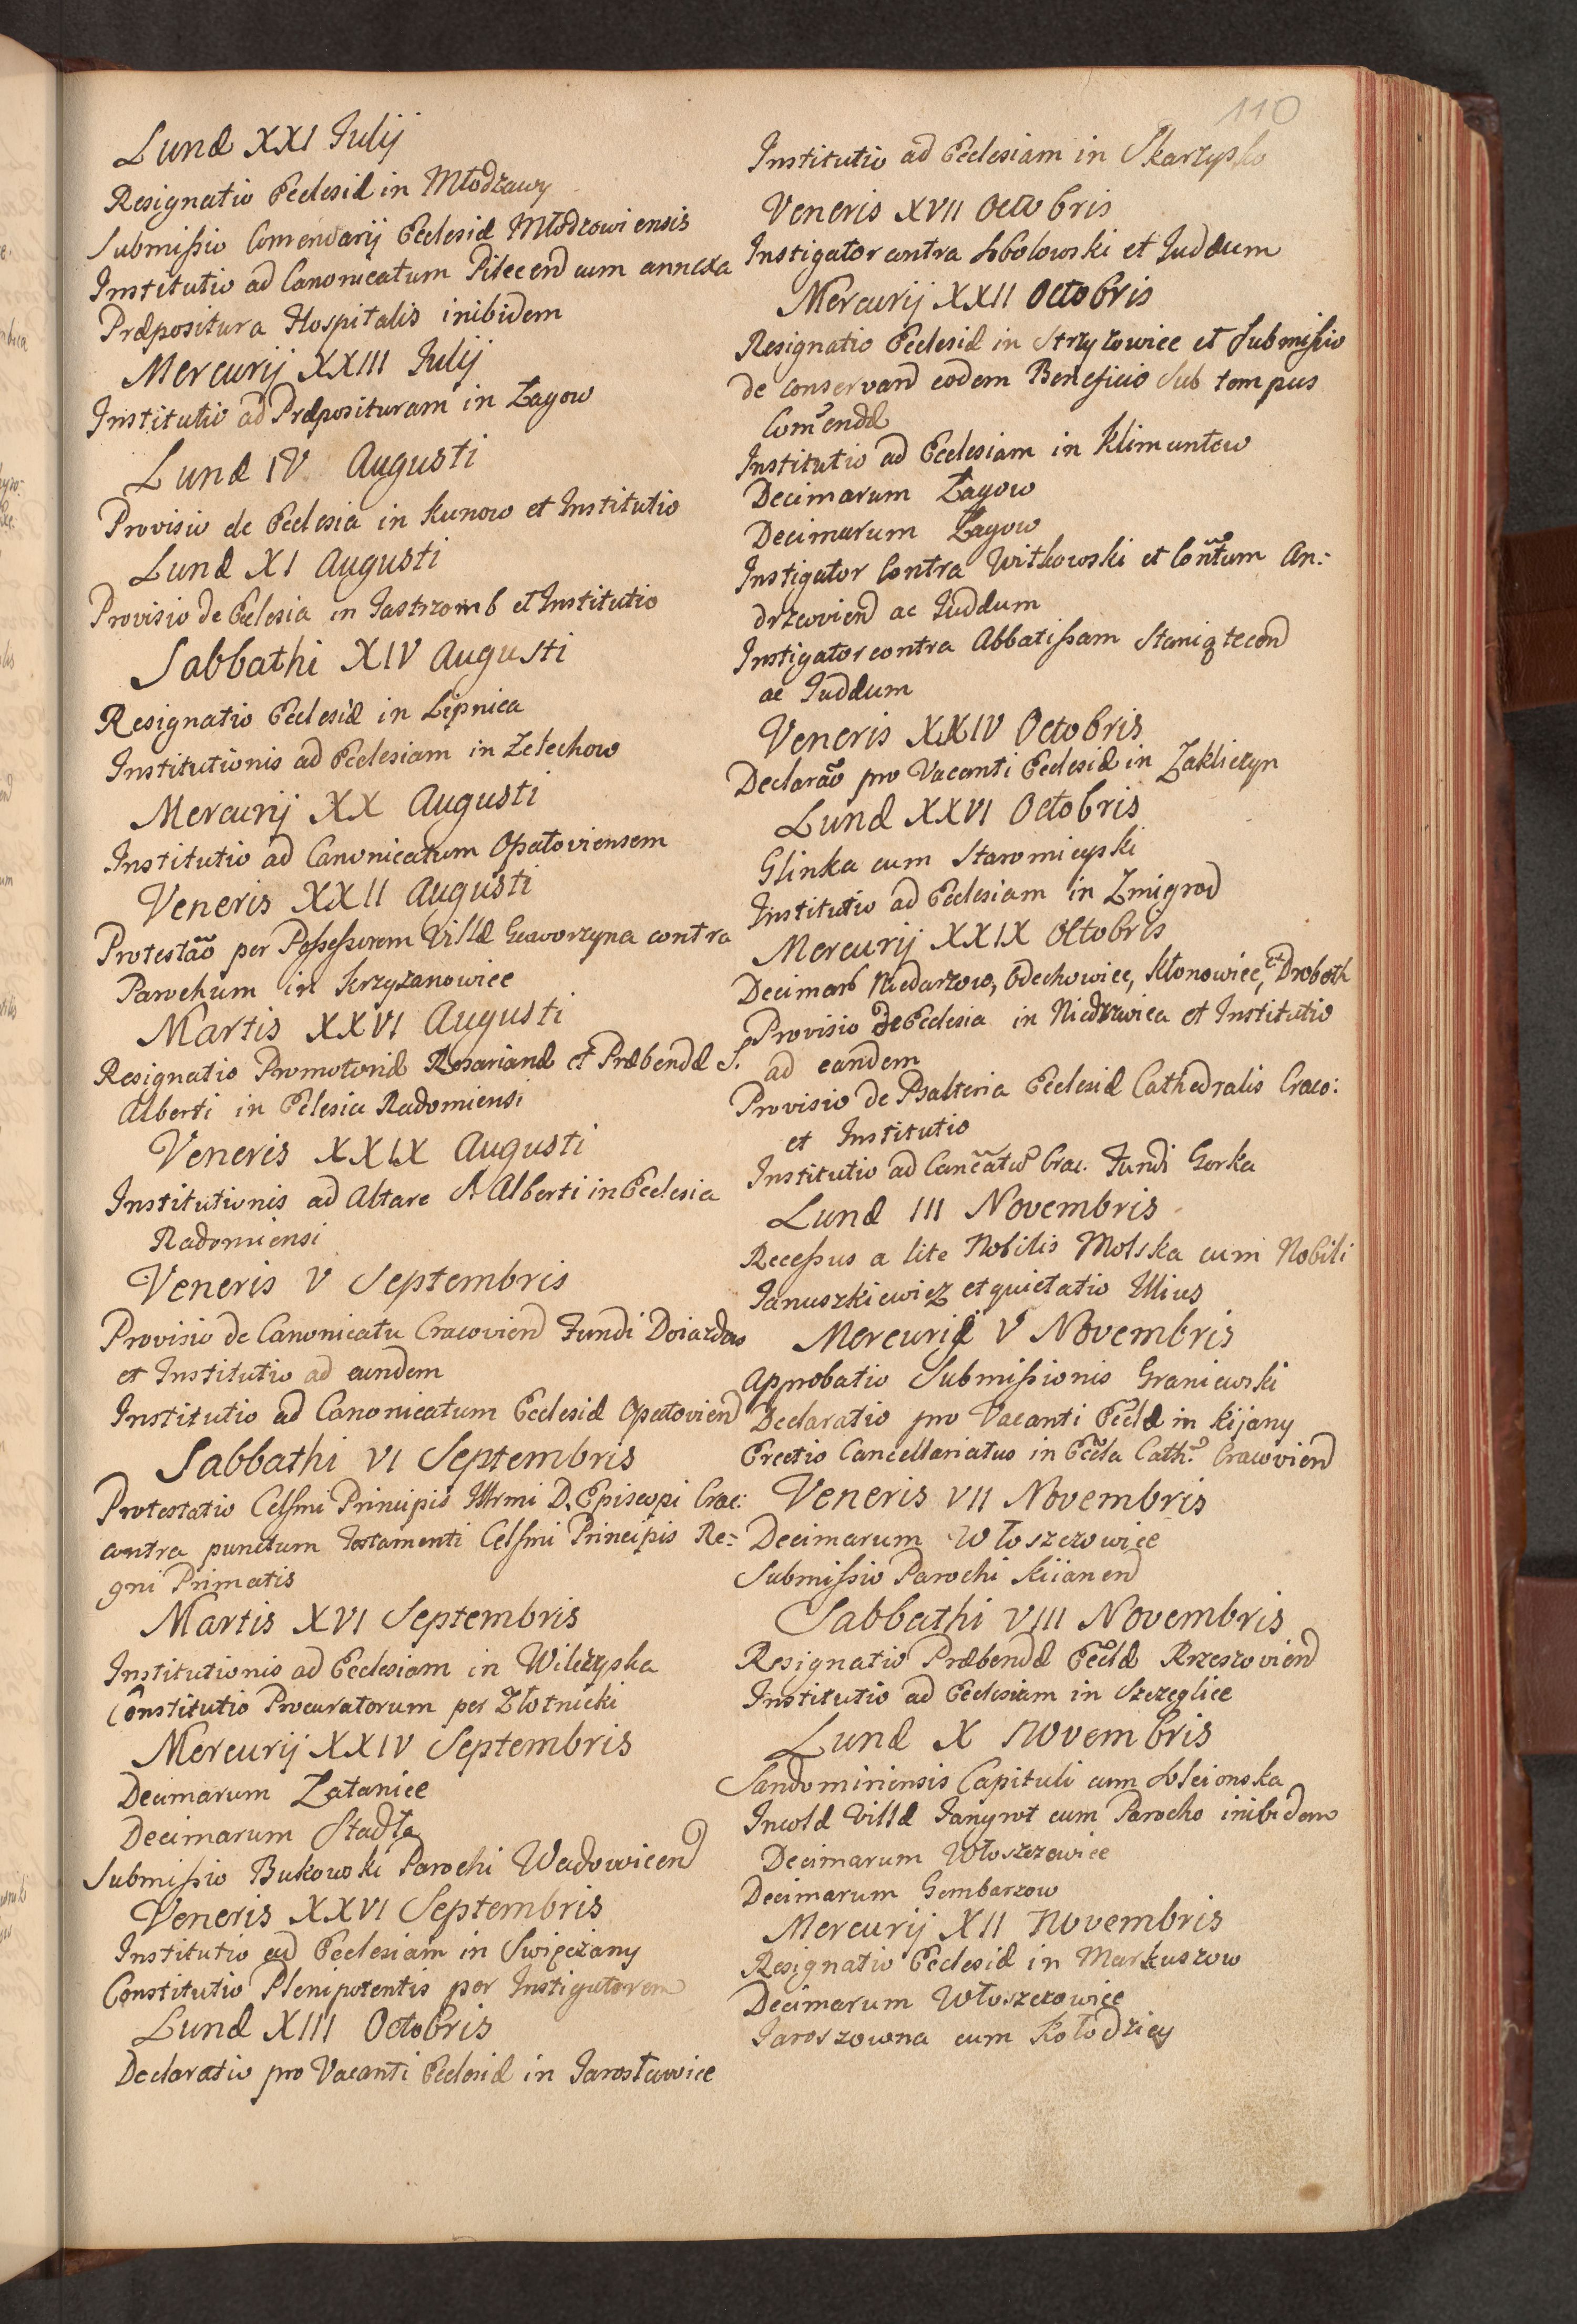 110
Lunæ XXI Julij
Resignatio Ecclesiæ in Młodzawy
Submissio Comendarij Ecclesiæ Młodzowiensis
Institutio ad Canonicatum Pilecen̄ cum annexa
Præpositura Hospitalis inibidem
Mercurij XXIII Julij
Institutio ad Præposituram in Łagow
Lunæ IV Augusti
Provisio de Ecclesia in Kunow et Institutio
Lunæ XI Augusti
Provisio de Eclesia in Jastrzomb et Institutio
Sabbathi XIV Augusti
Resignatio Ecclesiæ in Lipnica
Institutionis ad Ecclesiam in Zelechow
Mercurij XX Augusti
Institutio ad Canonicatum Opatoviensem
Veneris XXII Augusti
Protestaõ per Possessorem Villæ Gaworzyna contra
Parochum in Krzyżanowice
Martis XXVI Augusti
Resignatio Promotoriæ Rosarianæ et Præbendæ S.
Alberti in Eclesia Radomiensi
Veneris XXIX Augusti
Institutionis ad Altare S. Alberti in Ecclesia
Radomiensi
Veneris V Septembris
Provisio de Canonicatu Cracovien̄ Fundi Doiazdow
et Institutio ad eundem
Institutio ad Canonicatum Ecclesiæ Opatovien̄
Sabbathi VI Septembris
Protestatio Celsmi Principis Illrmi D. Episcopi Crac:
contra punctum Testamenti Celsmi Principis Re-
gni Primatis
Martis XVI Septembris
Institutionis ad Ecclesiam in Wilczyska
Constitutio Procuratorum per Złotnicki
Mercurij XXIV Septembris
Decimarum Zatanice
Decimarum Stadła
Submissio Bukowski Parochi Wadowicen̄
Veneris XXVI Septembris
Institutio ad Ecclesiam in Swięciany
Constitutio Plenipotentis per Instigatorem
Lunæ XIII Octobris
Declaratio pro Vacanti Ecclesiæ in Jarosławice
Institutio ad Ecclesiam in Skarzysko
Veneris XVII Octobris
Instigator contra Sobolowski et Judæum
Mercurij XXII Octobris
Resignatio Ecclesiæ in Strzyżowice et Submissio
de conservand eodem Beneficio sub tempus
Com̃endæ
Institutio ad Ecclesiam in Klimuntow
Decimarum Łagow
Decimarum Łagow
Instigator Contra Witkowski et Con̄tum An:
drzeovien̄ ac Judæum
Instigator contra Abbatissam Staniątecen̄
ac Judæum
Veneris XXIV Octobris
Declaraõ pro Vacanti Ecclesiæ in Zakliczyn
Lunæ XXVI Octobris
Glinka cum Staromieyski
Institutio ad Ecclesiam in Zmigrod
Mercurij XXIX Octobris
Decimarũ Niedarzow, Odechowiec, Kłonowiec, et Droboth
Provisio de Ecclesia in Niedrzwica et Institutio
ad eandem
Provisio de Psalteria Ecclesiæ Cathedralis Craco:
et Institutio
Institutio ad Canc̃atũ Crac. Fundi Gorka
Lunæ III Novembris
Recessus a lite Nobilis Molska cum Nobili
Januszkiewicz et quietatio Illius
Mercurij V Novembris
Approbatio Submissionis Graniewski
Declaratio pro Vacanti Eccl̃æ in Kijany
Erectio Cancellariatus in Eccl̃a Cath. Cracovien̄
Veneris VII Novembris
Decimarum Włoszczowice
Submissio Parochi Kiianen̄
Sabbathi VIII Novembris
Resignatio Præbendæ Eccl̃æ Rzeszovien̄
Institutio ad Ecclesiam in Szczeglice
Lunæ X Novembris
Sandomiriensis Capituli cum
Incolæ Villæ Janyrot cum Parocho inibidem
Decimarum Włoszczowice
Decimarum Gembarzow
Mercurij XII Novembris
Resignatio Ecclesiæ in Markuszow
Decimarum Włoszczowice
Jaroszowna cum Kołodziey